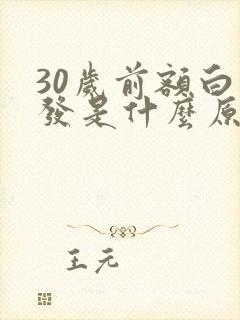 30歲前額白
發是什麼原
王元